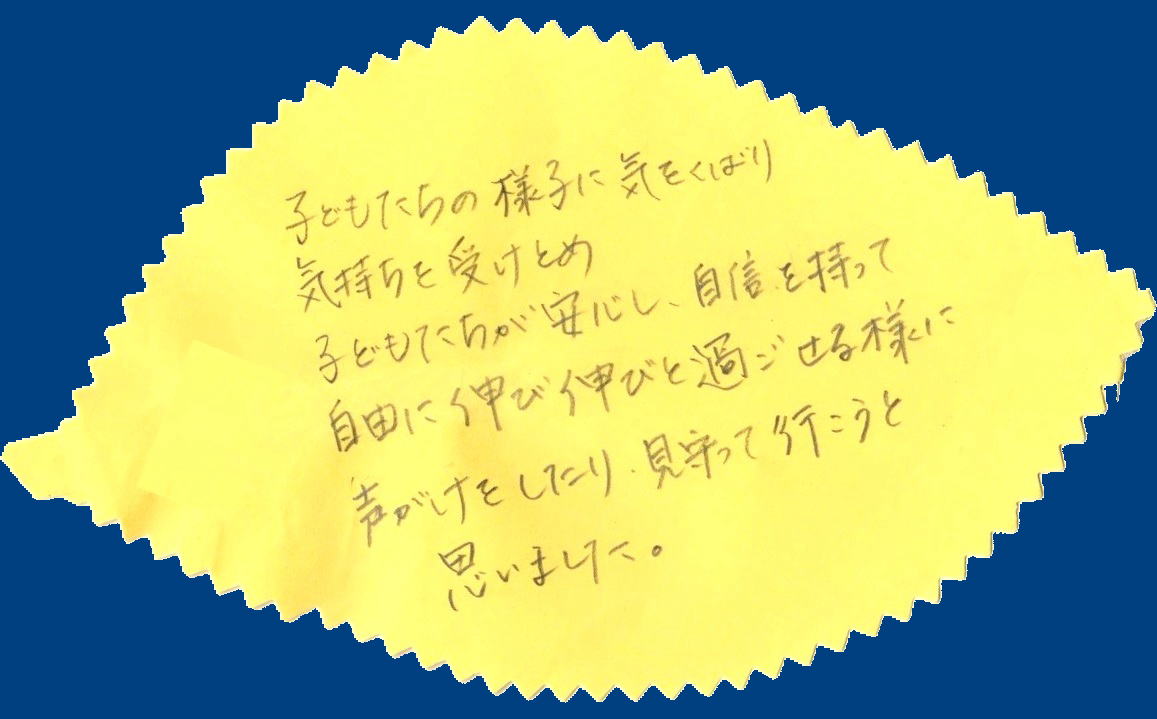 子どもたちの様子に気をくばり
気持ちを受けとめ
子どもたちが安心し、自信を持って
自由に伸び伸びと過ごせる様に
声がけをしたり、見守って行こうと
思いました。